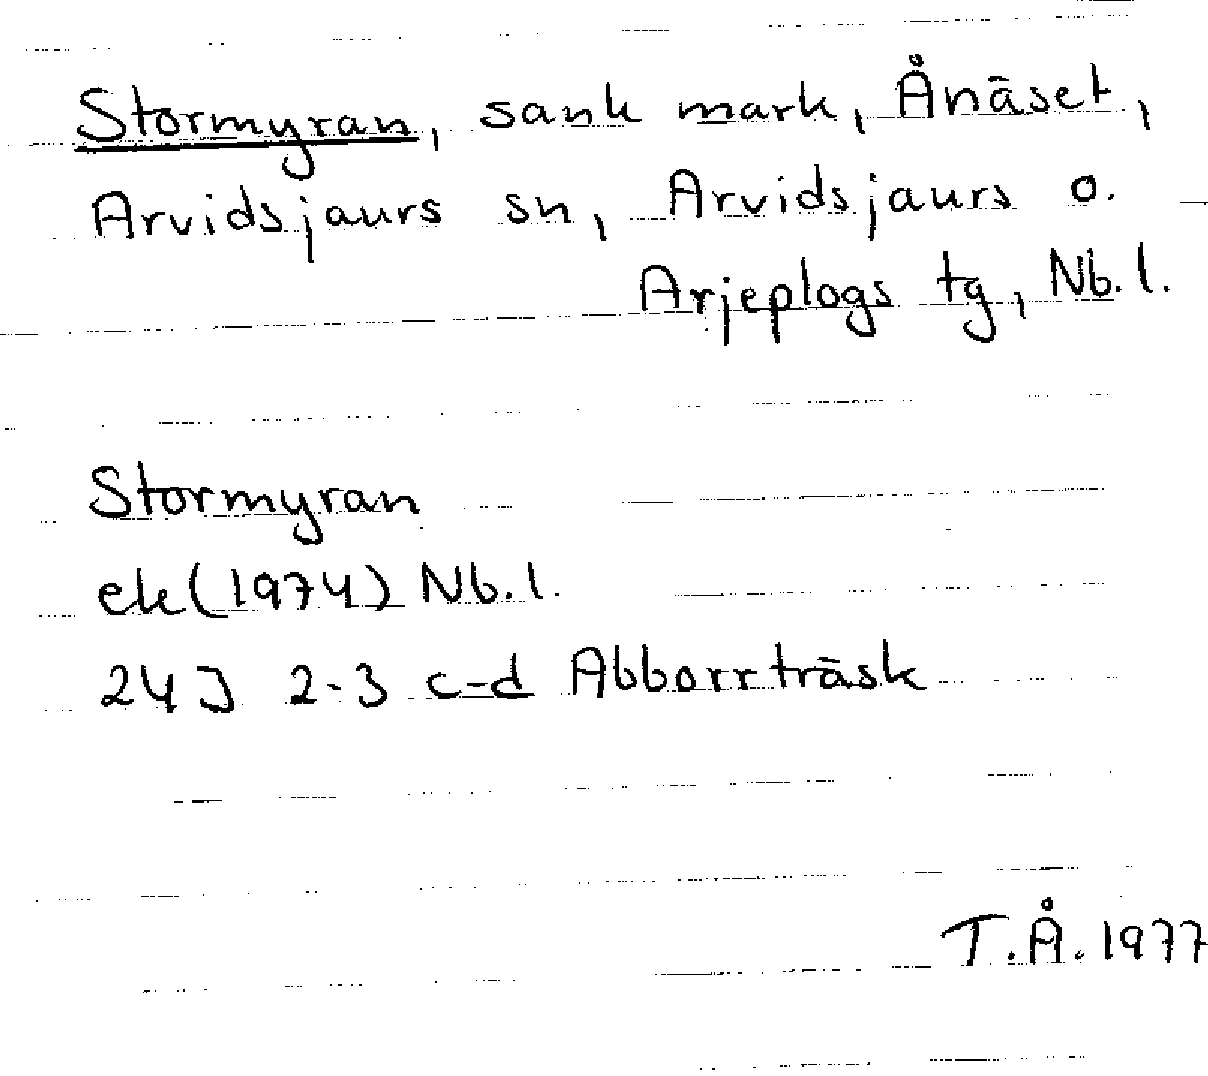 Stormyran, sank mark, Ånäset,
Arvidsjaurs sn, Arvidsjaurs o.
Arjeplogs tg, Nb.l.
Stormyran
ek(1974) Nb.l.
24J 2-3 c-d Abborrträsk
T.Å. 1977